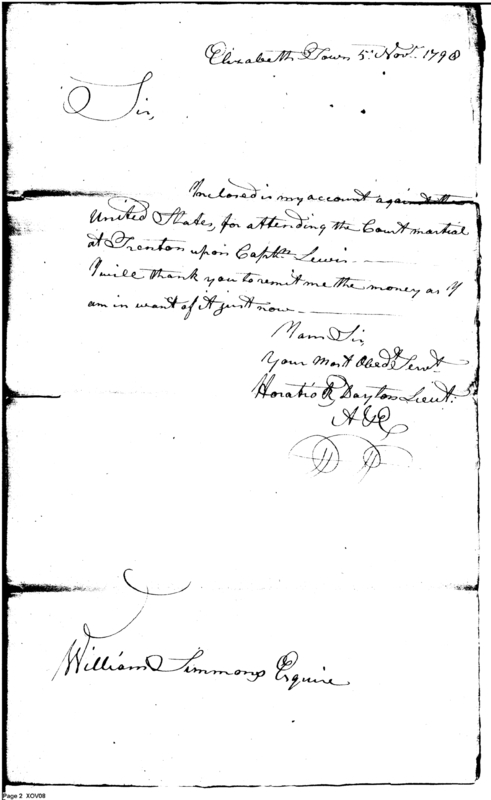 Elizabeth Town 5th Novr. 1798
Sir,
Inclosed is my account against the
United States, for attending the Court martial
at Trenton upon Captn. Lewis
I will thank you to remit me the money as I
am in want of it just now
I am Sir,
Your Most Obedt. Servt.
Horatio R Dayton Lieut.
William Simmons Esquire
Page 2 XOV08